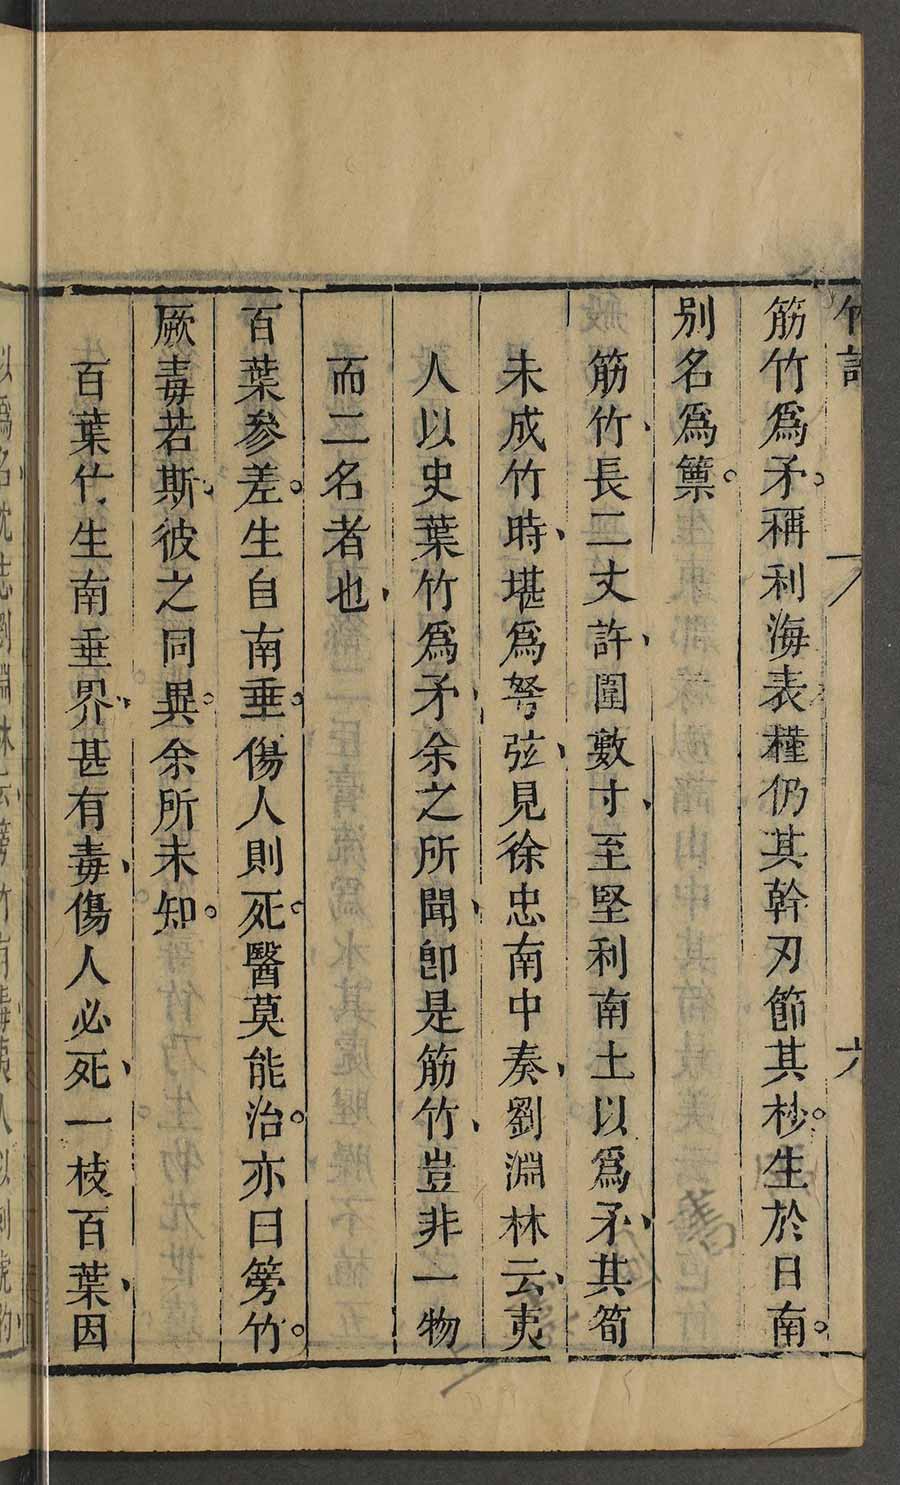 筋竹爲矛。稱利海表。槿仍其幹刃節其杪。生於日南。
別名爲篻。
筋竹、長二丈許、圍數寸、至堅利南土以爲矛、其筍
未成竹時、堪爲弩弦、見徐忠南中奏、劉淵林云、夷
人以史葉竹爲矛、余之所聞、卽是筋竹、豈非一物
而二名者也、
百葉參差。生自南垂。傷人則死。醫莫能治。亦曰篣竹。
厥毒若斯、彼之同異。余所未知。
百葉竹、生南垂界、甚有毒、傷人必死、一枝百葉、因